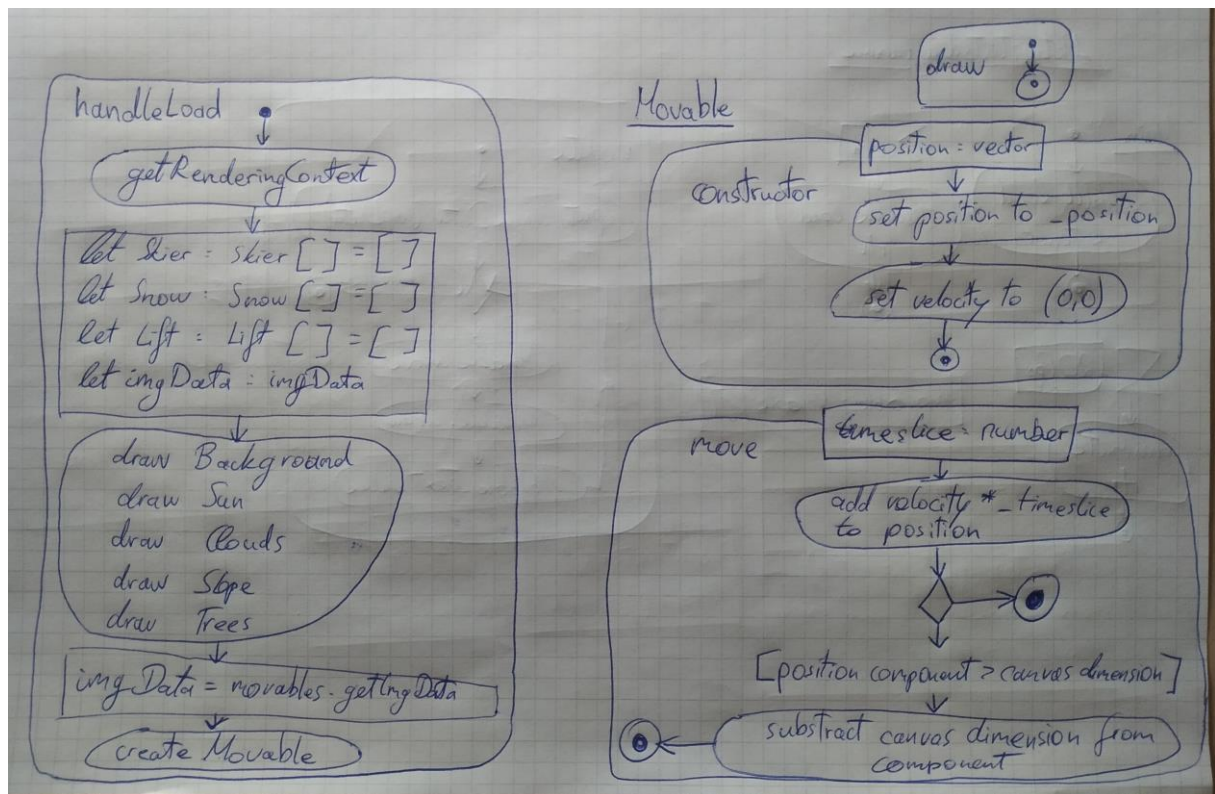 handleLoad
getRenderingContext
let Skier : Skier [ ] = [ ]
let Snow : Snow [ ] = [ ]
let Lift : Lift [ ] = [ ]
let imgData : imgData
draw Background
draw Sun
draw Clouds
draw Slope
draw Trees
imgData = movables.getImgData
create Movable
Movable
draw
position : vector
constructor
set position to _position
set velocity to (0,0)
timeslice : number
move
add velocity * _timeslice
to position
[position component > canvas dimension]
substract canvas dimension from
component